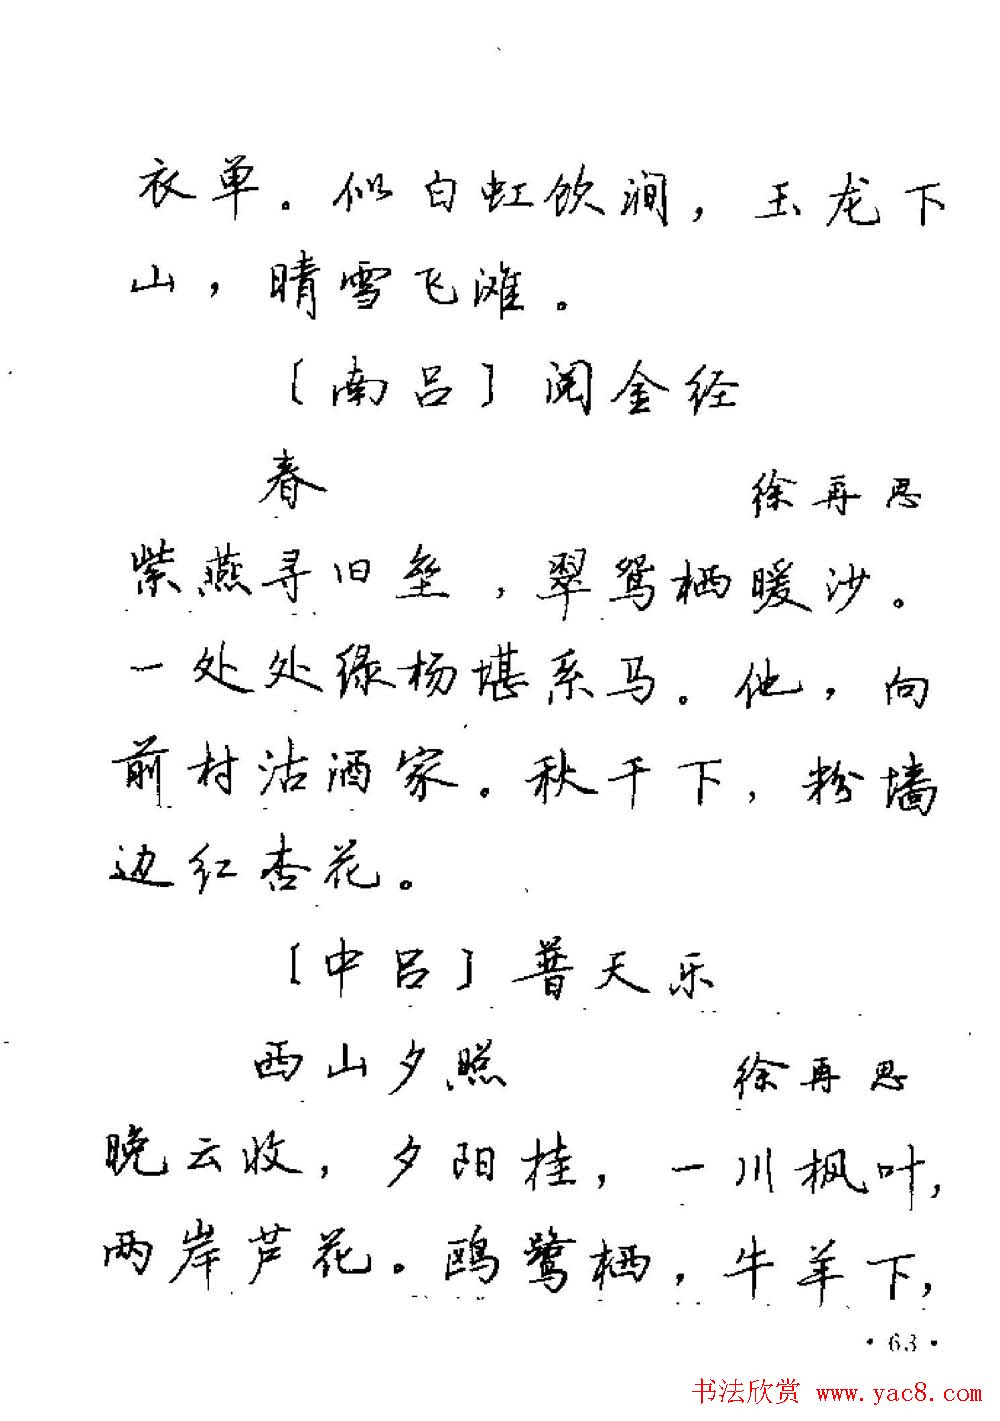 衣单。似白虹饮涧，玉龙下
山，晴雪飞滩。
〔南吕〕阅金经
春 徐再思
紫燕寻旧垒，翠鸳栖暖沙。
一处处绿杨堪系马。他，向
前村沽酒家。秋千下，粉墙
边红杏花。
〔中吕〕普天乐
西山夕照 徐再思
晚云收，夕阳挂，一川枫叶，
两岸芦花。鸥鹭栖，牛羊下，
·63·
书法欣赏 www.yac8.com